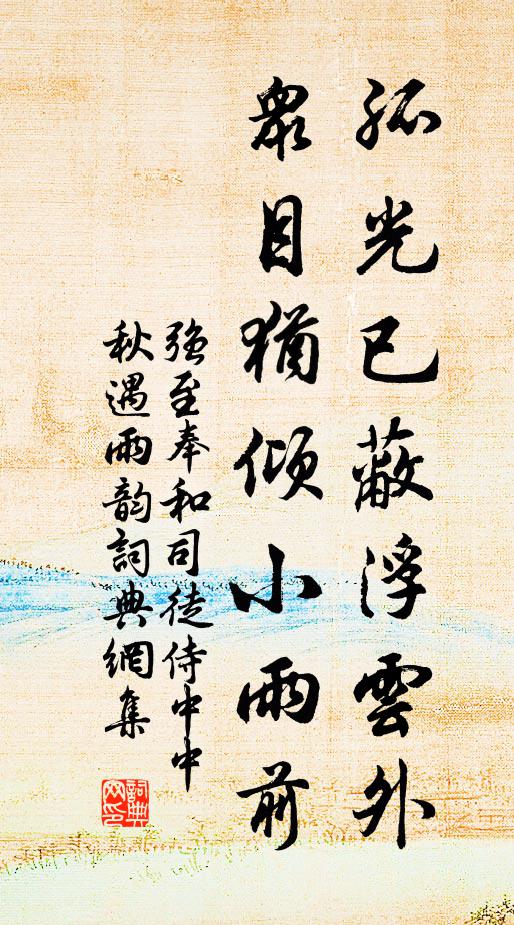 孤光已蔽浮雲外
衆目猶傾小雨前
强至奉和司徒侍中中
秋遇雨韵詞典網集
詞典网印